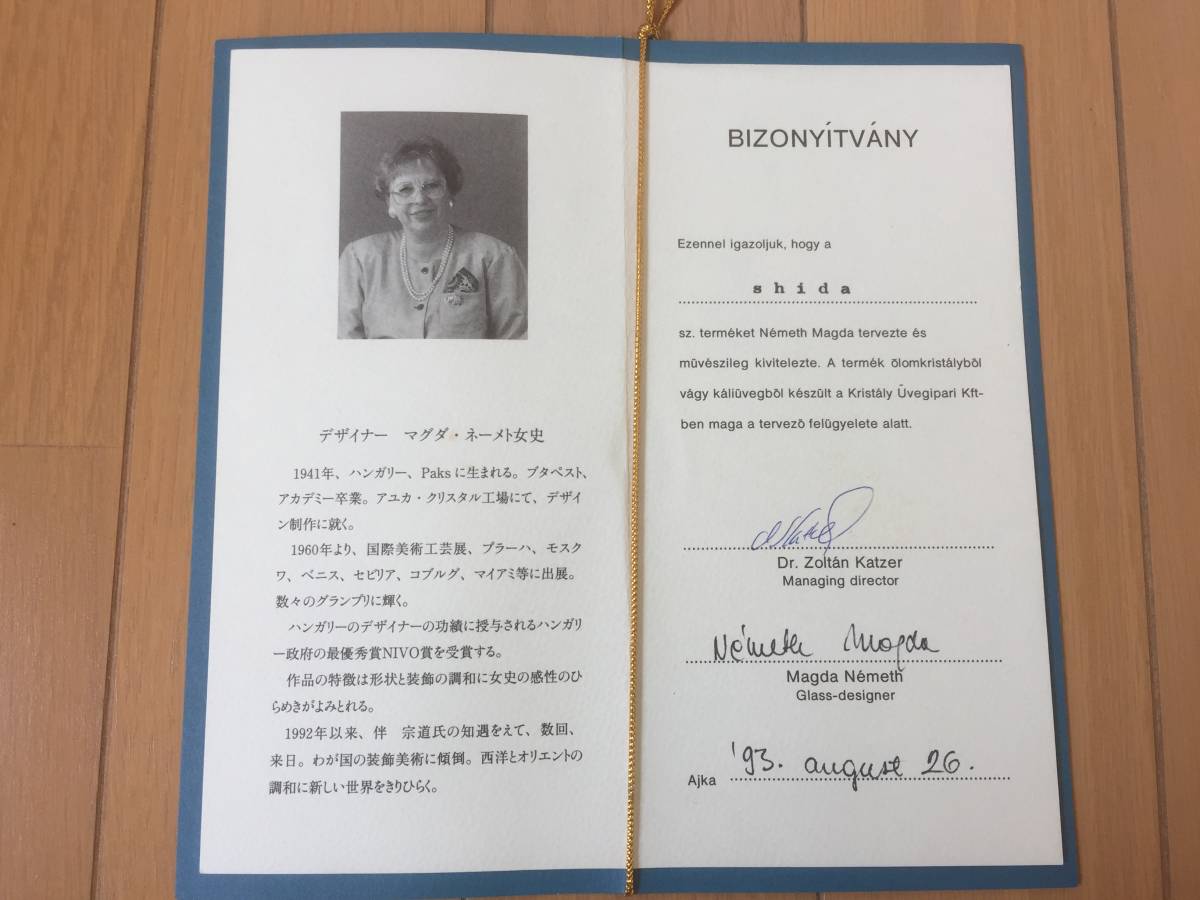 デザイナー　マグダ・ネーメト女史
1941年、ハンガリー、Paksに生まれる。ブタペスト、
アカデミー卒業。アユカ・クリスタル工場にて、デザイ
ン制作に就く。
1960年より、国際美術工芸展、プラーハ、モスク
ワ、ベニス、セビリア、コブルグ、マイアミ等に出展。
数々のグランプリに輝く。
ハンガリーのデザイナーの功績に授与されるハンガリ
ー政府の最優秀賞NIVO賞を受賞する。
作品の特徴は形状と装飾の調和に女史の感性のひ
らめきがよみとれる。
1992年以来、伴　宗道氏の知遇をえて、数回、
来日。わが国の装飾美術に傾倒。西洋とオリエントの
調和に新しい世界をきりひらく。
BIZONYÍTVÁNY
Ezennel igazoljuk, hogy a
shida
sz. terméket Németh Magda tervezte és
mūvészileg kivitelezte. A termék ōlomkristálybōl
vágy káliüvegbōl készült a Kristály Ūvegipari Kft-
ben maga a tervezō felügyelete alatt.
Dr. Zoltán Katzer
Managing director
Németh Magda
Magda Németh
Glass-designer
Ajka '93. august 26.